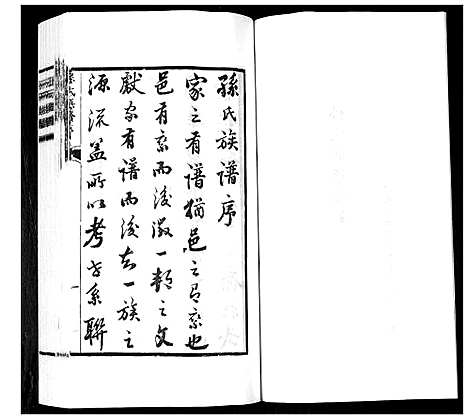 孫氏族譜序
家之有譜猶邑之有乘也
邑有乘而後徵一郡之文
獻家有譜而後知一族之
源流蓋所以考世系聯
一